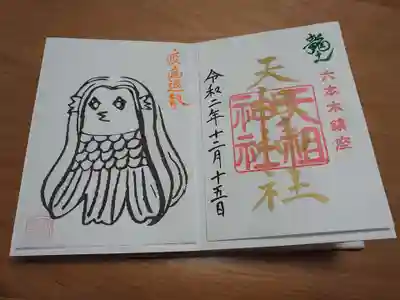 龍土
六本木鎮座
天祖神社
天祖神社
令和二年十二月十五日
疫病退散